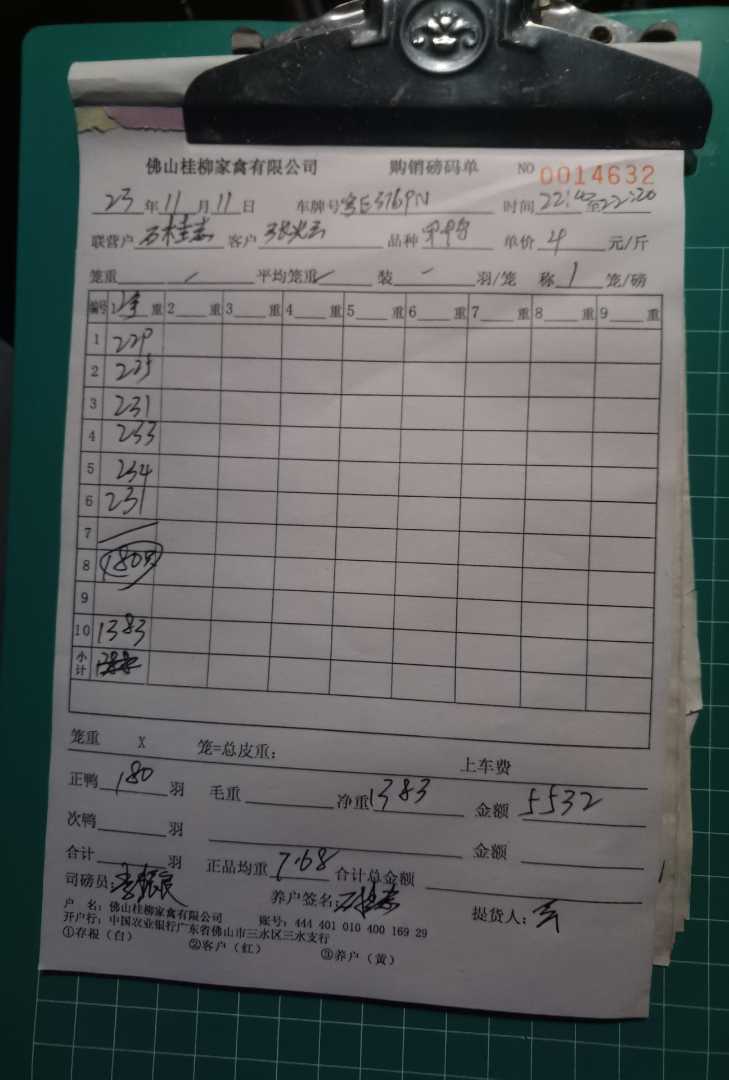 佛山桂柳家禽有限公司 购销磅码单 NO 0014632
23年11月11日 车牌号 时间 至22:20
联营户 石桂志 客户 品种 单价 4 元/斤
笼重 / 平均笼重 / 装 - 羽/笼 称 1 笼/磅
编号 1 重 2 重 3 重 4 重 5 重 6 重 7 重 8 重 9 重
1 229
2 225
3 231
4 233
5 234
6 231
7
8 180只
9
10 1383
小计
笼重 X 笼=总皮重: 上车费
正鸭 180 羽 毛重 净重 1383 金额 5532
次鸭 羽 金额
合计 羽 正品均重 7.68 合计总金额
司磅员: 养户签名: 石桂志 提货人:
户 名: 佛山桂柳家禽有限公司 账号: 444 401 010 400 169 29
开户行: 中国农业银行广东省佛山市三水区三水支行
①存根（白） ②客户（红） ③养户（黄）